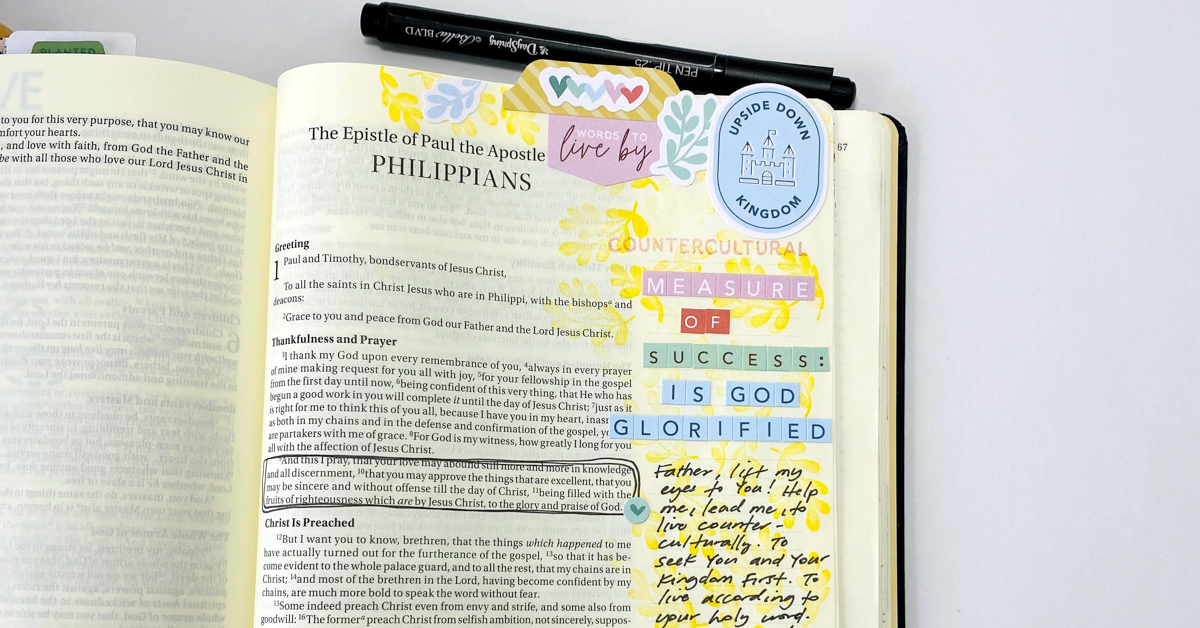 PLANTED
DaySpring Bella BLVD
PEN TIP .25
VE
to you for this very purpose, that you may know our
mfort your hearts.
, and love with faith, from God the Father and the
be with all those who love our Lord Jesus Christ in
The Epistle of Paul the Apostle
PHILIPPIANS
WORDS TO
live by
UPSIDE DOWN
KINGDOM
67
Greeting
1 Paul and Timothy, bondservants of Jesus Christ,
To all the saints in Christ Jesus who are in Philippi, with the bishopsᵃ and
deacons:
²Grace to you and peace from God our Father and the Lord Jesus Christ.
Thankfulness and Prayer
³I thank my God upon every remembrance of you, ⁴always in every prayer
of mine making request for you all with joy, ⁵for your fellowship in the gospel
from the first day until now, ⁶being confident of this very thing, that He who has
begun a good work in you will complete it until the day of Jesus Christ; ⁷just as it
is right for me to think this of you all, because I have you in my heart, inasm
as both in my chains and in the defense and confirmation of the gospel, y
are partakers with me of grace. ⁸For God is my witness, how greatly I long for you
all with the affection of Jesus Christ.
⁹And this I pray, that your love may abound still more and more in knowledge
and all discernment, ¹⁰that you may approve the things that are excellent, that you
may be sincere and without offense till the day of Christ, ¹¹being filled with the
fruits of righteousness which are by Jesus Christ, to the glory and praise of God.
Christ Is Preached
¹²But I want you to know, brethren, that the things which happened to me
have actually turned out for the furtherance of the gospel, ¹³so that it has be-
come evident to the whole palace guard, and to all the rest, that my chains are in
Christ; ¹⁴and most of the brethren in the Lord, having become confident by my
chains, are much more bold to speak the word without fear.
¹⁵Some indeed preach Christ even from envy and strife, and some also from
goodwill: ¹⁶The formerᵃ preach Christ from selfish ambition, not sincerely, suppos-
COUNTERCULTURAL
MEASURE
OF
SUCCESS:
IS GOD
GLORIFIED
Father, lift my
eyes to You! Help
me, lead me, to
live counter-
culturally. To
seek You and Your
Kingdom First. To
live according to
your holy word.